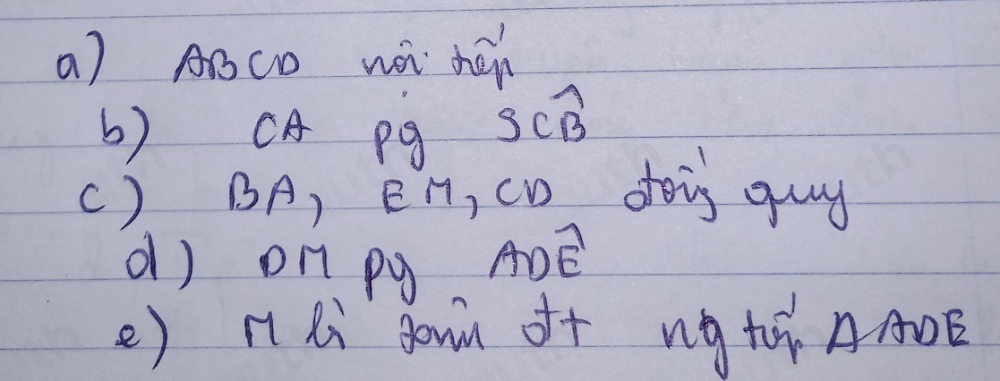 a) ABCD nội tiếp
b) CA pg SCB̂
c) BA, EM, CD đồng quy
d) DM pg ADÊ
e) M là tâm đtt ng tiếp ΔADE